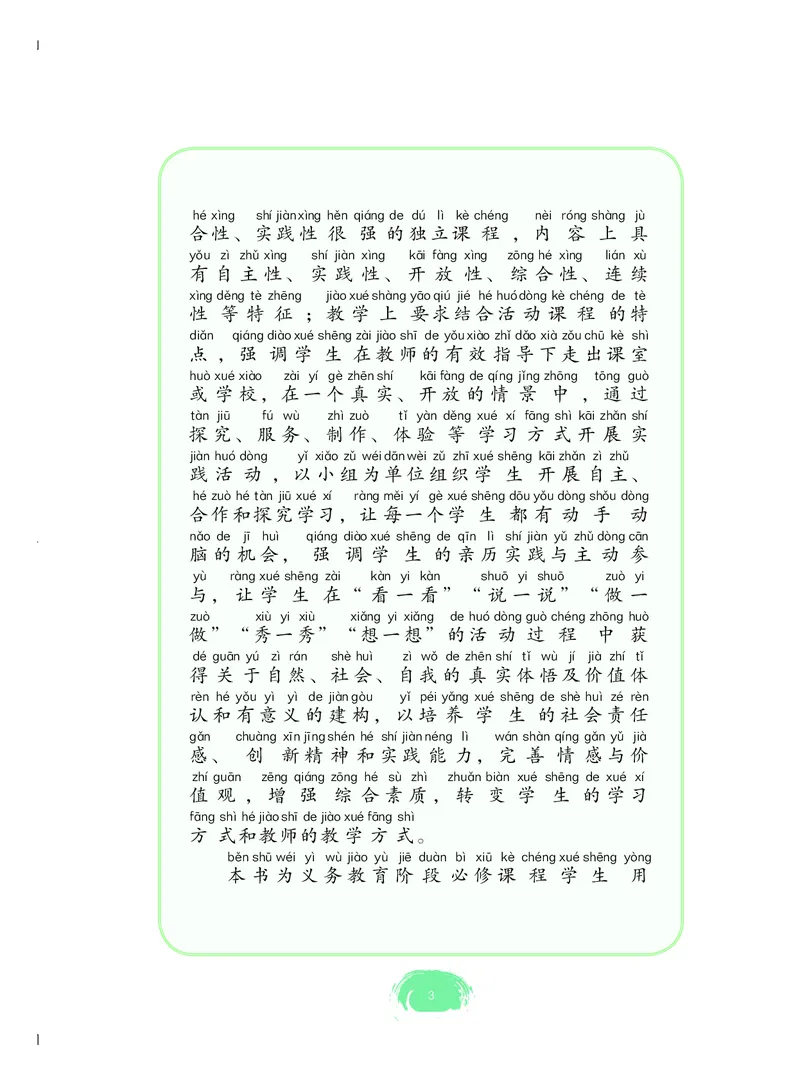 hé xìng shí jiàn xìng hěn qiáng de dú lì kè chéng nèi róng shàng jù
合性、实践性很强的独立课程，内容上具
yǒu zì zhǔ xìng shí jiàn xìng kāi fàng xìng zōng hé xìng lián xù
有自主性、实践性、开放性、综合性、连续
xìng děng tè zhēng jiào xué shàng yāo qiú jié hé huó dòng kè chéng de tè
性等特征；教学上要求结合活动课程的特
diǎn qiáng diào xué shēng zài jiào shī de yǒu xiào zhǐ dǎo xià zǒu chū kè shì
点，强调学生在教师的有效指导下走出课室
huò xué xiào zài yí gè zhēn shí kāi fàng de qíng jǐng zhōng tōng guò
或学校，在一个真实、开放的情景中，通过
tàn jiū fú wù zhì zuò tǐ yàn děng xué xí fāng shì kāi zhǎn shí
探究、服务、制作、体验等学习方式开展实
jiàn huó dòng yǐ xiǎo zǔ wéi dān wèi zǔ zhī xué shēng kāi zhǎn zì zhǔ
践活动，以小组为单位组织学生开展自主、
hé zuò hé tàn jiū xué xí ràng měi yí gè xué shēng dōu yǒu dòng shǒu dòng
合作和探究学习，让每一个学生都有动手动
nǎo de jī huì qiáng diào xué shēng de qīn lì shí jiàn yǔ zhǔ dòng cān
脑的机会，强调学生的亲历实践与主动参
yù ràng xué shēng zài kàn yi kàn shuō yi shuō zuò yi
与，让学生在“看一看”“说一说”“做一
zuò xiù yi xiù xiǎng yi xiǎng de huó dòng guò chéng zhōng huò
做”“秀一秀”“想一想”的活动过程中获
dé guān yú zì rán shè huì zì wǒ de zhēn shí tǐ wù jí jià zhí tǐ
得关于自然、社会、自我的真实体悟及价值体
rèn hé yǒu yì yì de jiàn gòu yǐ péi yǎng xué shēng de shè huì zé rèn
认和有意义的建构，以培养学生的社会责任
gǎn chuàng xīn jīng shén hé shí jiàn néng lì wán shàn qíng gǎn yǔ jià
感、创新精神和实践能力，完善情感与价
zhí guān zēng qiáng zōng hé sù zhì zhuǎn biàn xué shēng de xué xí
值观，增强综合素质，转变学生的学习
fāng shì hé jiào shī de jiào xué fāng shì
方式和教师的教学方式。
běn shū wéi yì wù jiào yù jiē duàn bì xiū kè chéng xué shēng yòng
本书为义务教育阶段必修课程学生用
3